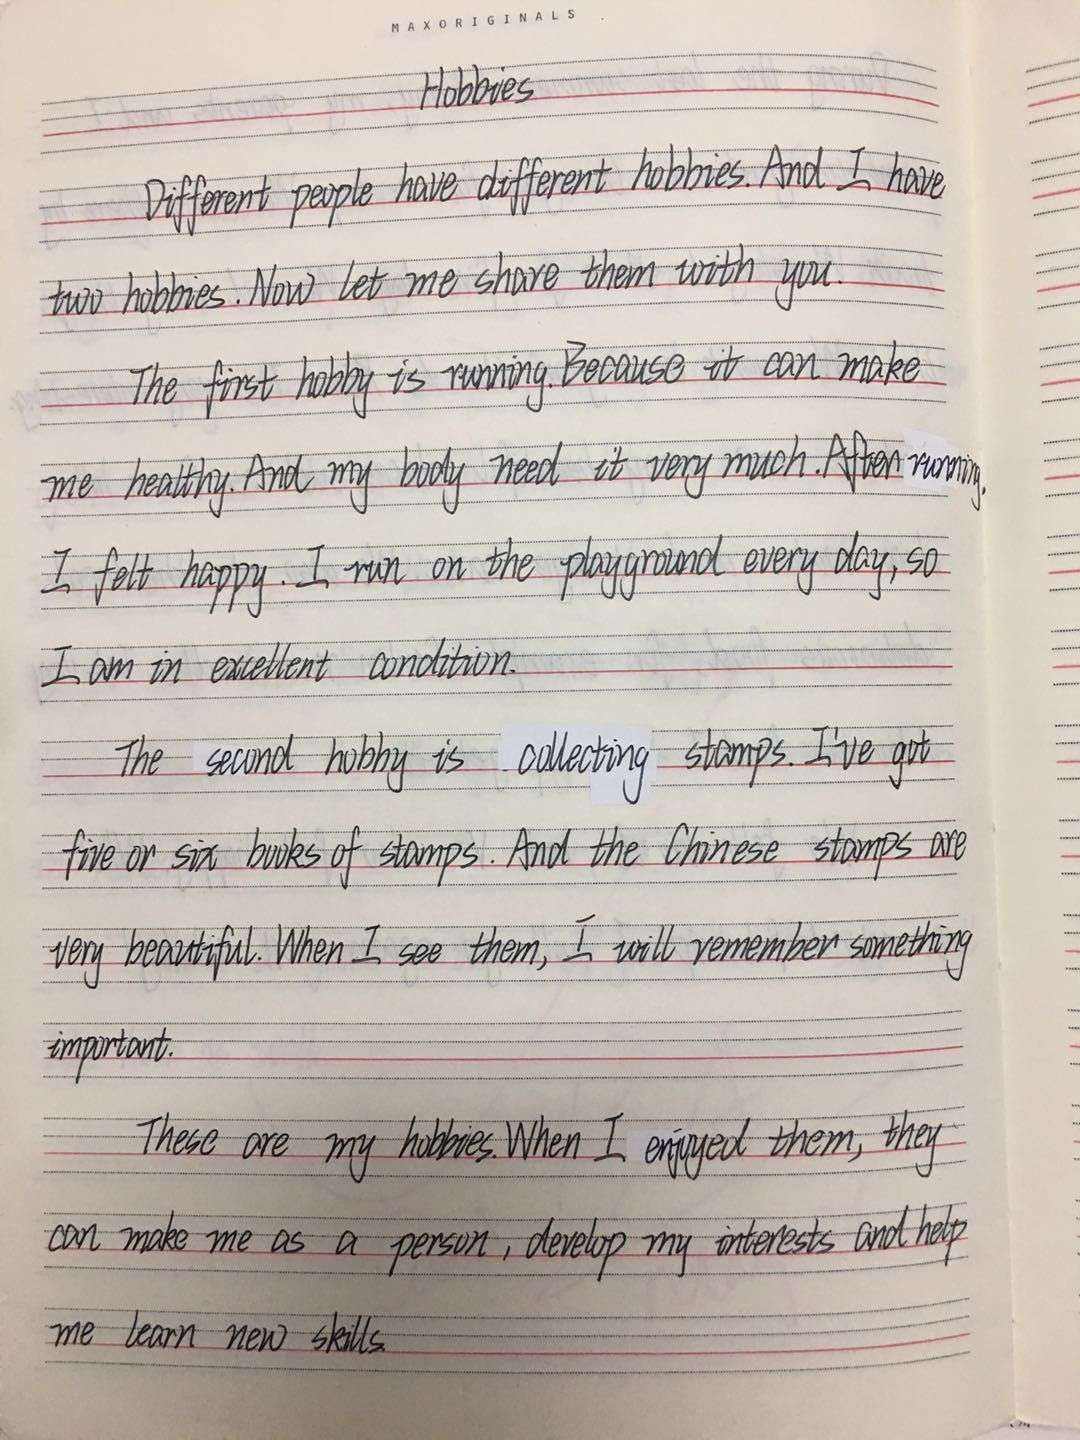 MAXORIGINALS
Hobbies
Different people have different hobbies. And I have
two hobbies. Now let me share them with you.
The first hobby is running. Because it can make
me healthy. And my body need it very much. After running,
I felt happy. I run on the playground every day, so
I am in excellent condition.
The second hobby is collecting stamps. I've got
five or six books of stamps. And the Chinese stamps are
very beautiful. When I see them, I will remember something
important.
These are my hobbies. When I enjoyed them, they
can make me as a person, develop my interests and help
me learn new skills.